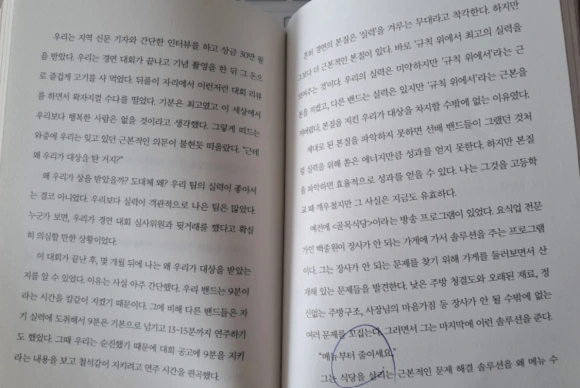 우리는 지역 신문 기자와 간단한 인터뷰를 하고 상금 30만 원
을 받았다. 우리는 경연 대회가 끝나고 기념 촬영을 한 뒤 그 돈으
로 즐겁게 고기를 사 먹었다. 뒤풀이 자리에서 이런저런 대회 리뷰
를 하면서 왁자지껄 수다를 떨었다. 기분은 최고였고 이 세상에서
우리보다 행복한 사람은 없을 것이라고 생각했다. 그렇게 떠드는
와중에 우리는 잊고 있던 근본적인 의문이 불현듯 떠올랐다. "근데
왜 우리가 대상을 탄 거지?"
왜 우리가 상을 받았을까? 도대체 왜? 우리 팀의 실력이 좋아서
는 결코 아니었다. 우리보다 실력이 객관적으로 나은 팀은 많았다.
누군가 보면, 우리가 경연 대회 심사위원과 뒷거래를 했다고 확실
히 의심할 만한 상황이었다.
이 대회가 끝난 후, 몇 개월 뒤에 나는 왜 우리가 대상을 받았는
지를 알 수 있었다. 이유는 사실 아주 간단했다. 우리 밴드는 9분이
라는 시간을 칼같이 지켰기 때문이다. 그에 비해 다른 밴드들은 자
기 실력에 도취해서 9분은 기본으로 넘기고 13~15분까지 연주하기
도 했었다. 그때 우리는 순진했기 때문에 대회 공고에 9분을 지키
라는 내용을 보고 철석같이 지키려고 연주 시간을 편곡했다.
흔히 경연의 본질은 '실력'을 겨루는 무대라고 착각한다. 하지만
그보다 더 근본적인 본질이 있다. 바로 '규칙 위에서' 최고의 실력을
보여주는 것이다. 우리의 실력은 미약하지만 '규칙 위에서'라는 근
본을 지켰고, 다른 밴드는 실력은 있지만 '규칙 위에서'라는 근본을
저버렸다. 본질을 지킨 우리가 대상을 차지할 수밖에 없는 이유였다.
제대로 된 본질을 파악하지 못하면 선배 밴드들이 그랬던 것처
럼 실력을 위해 쏟은 에너지만큼 성과를 얻지 못한다. 하지만 본질
을 파악하면 효율적으로 성과를 얻을 수 있다. 나는 그것을 고등학
교 때 깨우쳤지만 그 사실은 지금도 유효하다.
예전에 <골목식당>이라는 방송 프로그램이 있었다. 요식업 전문
가인 백종원이 장사가 안 되는 가게에 가서 솔루션을 주는 프로그램
이다. 그는 장사가 안 되는 문제를 찾기 위해 가게를 둘러보면서 산
재해 있는 문제들을 발견한다. 낮은 주방 청결도와 오래된 재료, 정
신없는 주방구조, 사장님의 마음가짐 등 장사가 안 될 수밖에 없는
여러 문제를 꼬집는다. 그러면서 그는 마지막에 이런 솔루션을 준다.
"메뉴부터 줄이세요."
그는 식당을 살리는 근본적인 문제 해결 솔루션을 왜 메뉴 수